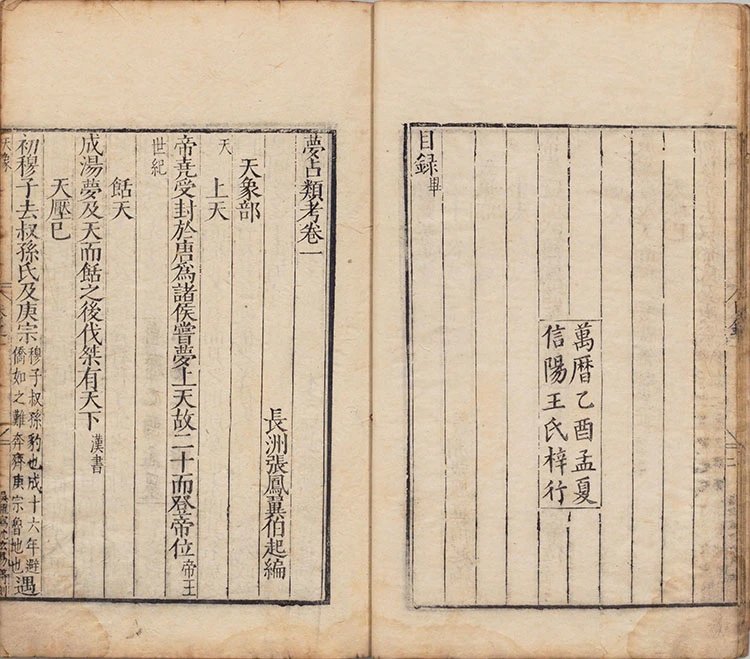 目録畢
萬曆乙酉孟夏
信陽王氏梓行
夢占類考卷一
長洲張鳳翼伯起編
天象部
天
上天
帝堯受封於唐為諸侯嘗夢上天故二十而登帝位帝王
世紀
餂天
成湯夢及天而餂之後伐桀有天下漢書
天壓已
初穆子去叔孫氏及庚宗穆子叔孫豹也成十六年避僑如之難奔齊庚宗魯地也遇
天象